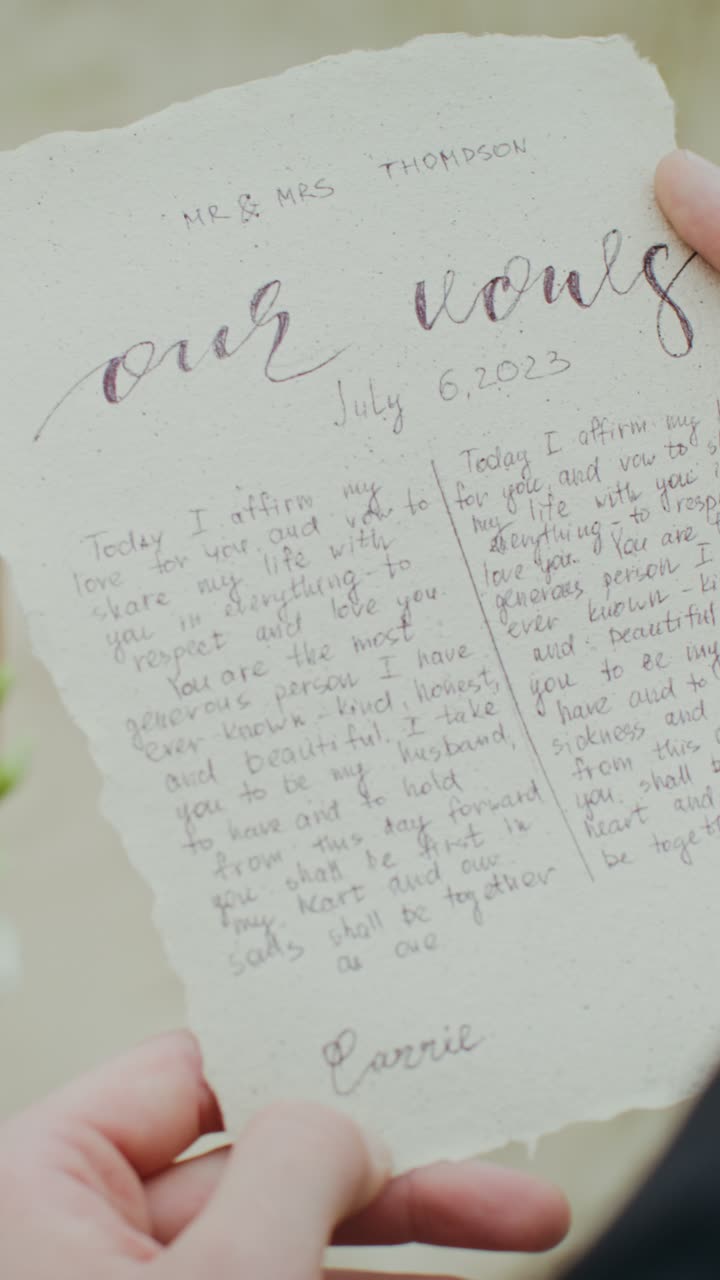 MR & MRS THOMPSON
our vows
July 6, 2023
Today I affirm my
love for you, and vow to
share my life with
you in everything - to
respect and love you.
You are the most
generous person I have
ever known - kind, honest,
and beautiful. I take
you to be my husband,
to have and to hold
from this day forward
you shall be first in
my heart and our
souls shall be together
as one
Carrie
Today I affirm my
for you, and vow to
my life with you
everything - to
love you. You are
generous person I
ever known -
and beautiful
you to be my
have and to
sickness and
from this
you shall
heart and
be